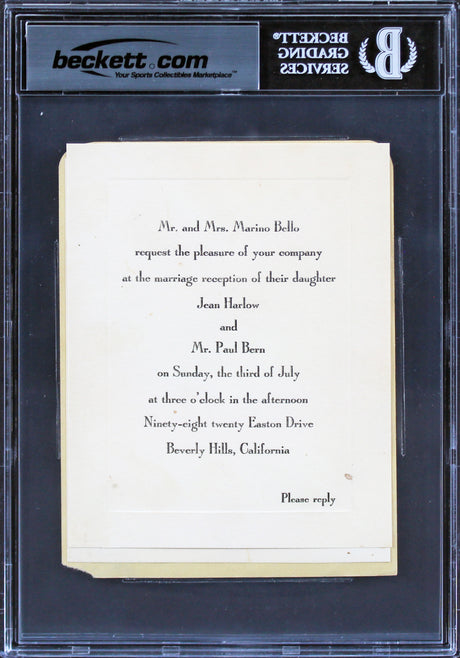 beckett.com
Your Sports Collectibles Marketplace™
BECKETT®
GRADING
SERVICES
B
Mr. and Mrs. Marino Bello
request the pleasure of your company
at the marriage reception of their daughter
Jean Harlow
and
Mr. Paul Bern
on Sunday, the third of July
at three o'clock in the afternoon
Ninety-eight twenty Easton Drive
Beverly Hills, California
Please reply